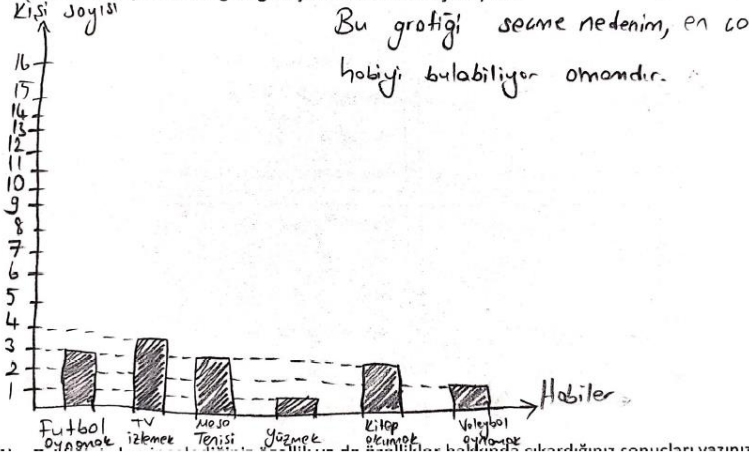 Kişi sayısı
Bu grafiği seçme nedenim, en ço
hobiyi bulabiliyor omamdır.
16
15
14
13
12
11
10
9
8
7
6
5
4
3
2
1
Hobiler
Futbol oynamak
TV izlemek
Masa Tenisi
Yüzmek
Kitap okumak
Voleybol oynamak
özellik ya da özellikler hakkında çıkardığınız sonuçları yazınız